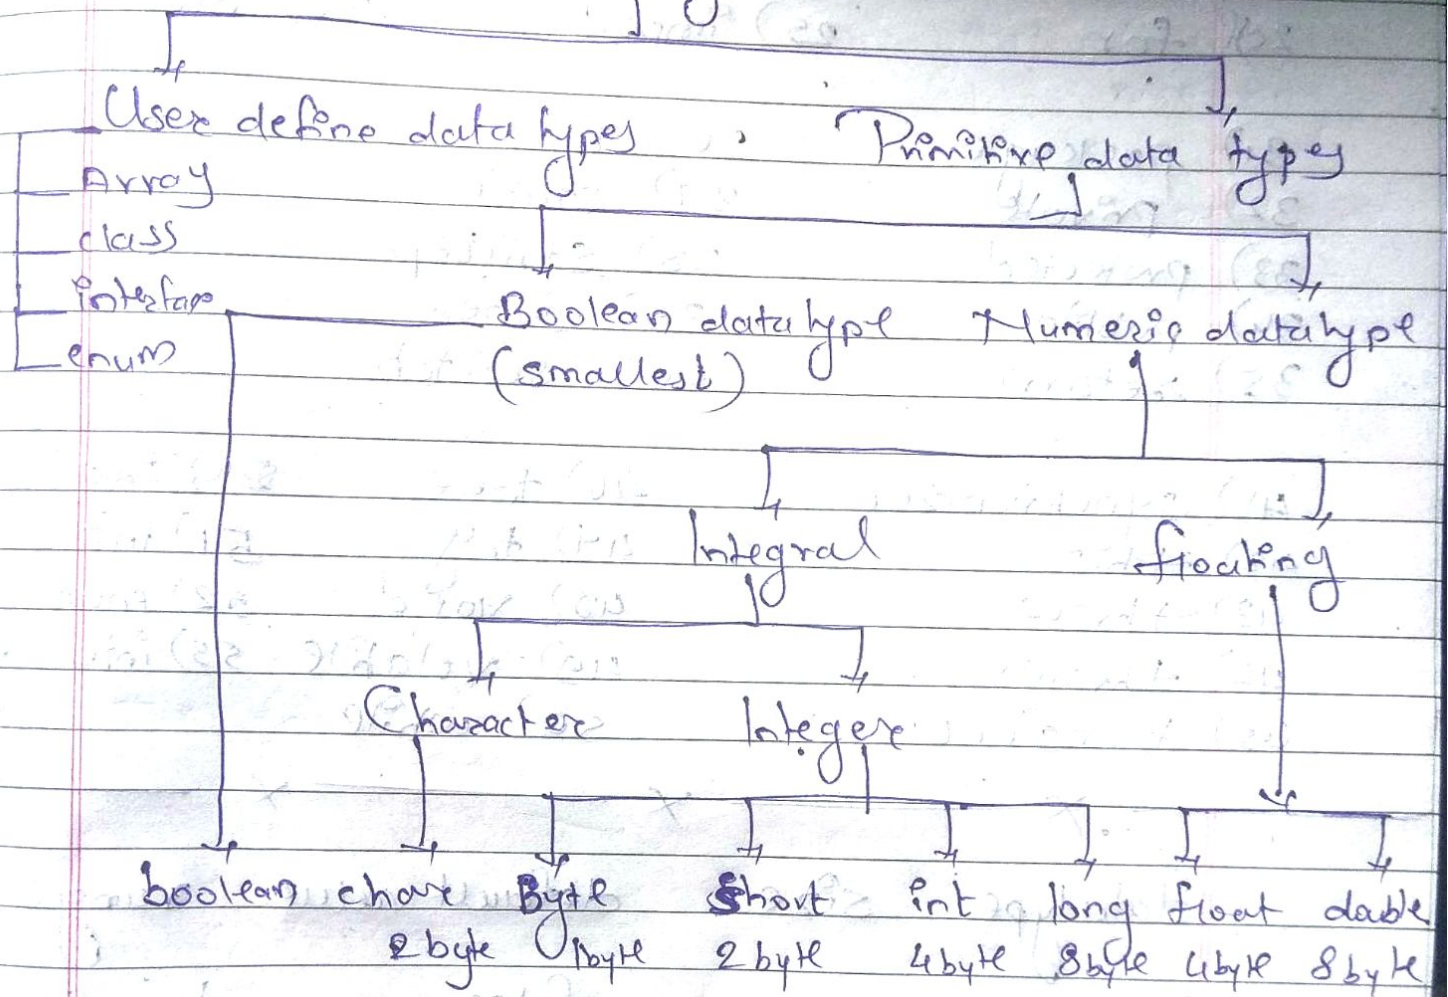 User define data types
Primitive data types
Array
class
interface
enum
Boolean datatype
(smallest)
Numeric datatype
Integral
floating
Character
Integer
boolean char Byte short int long float dable
2 byte 1byte 2 byte 4 byte 8 byte 4 byte 8 byte